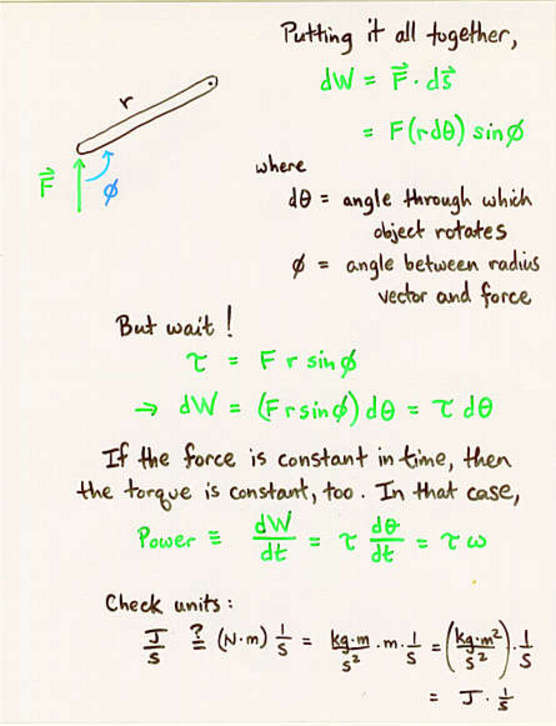 Putting it all together,
r
dW = F⃗ · ds⃗
= F(rdθ) sinϕ
F⃗
ϕ
where
dθ = angle through which
object rotates
ϕ = angle between radius
vector and force
But wait!
τ = F r sinϕ
→ dW = (F r sinϕ) dθ = τ dθ
If the force is constant in time, then
the torque is constant, too. In that case,
Power ≡ dW/dt = τ dθ/dt = τ ω
Check units:
J/s ?= (N·m) 1/s = kg·m/s² · m · 1/s = (kg·m²/s²) · 1/s
= J · 1/s